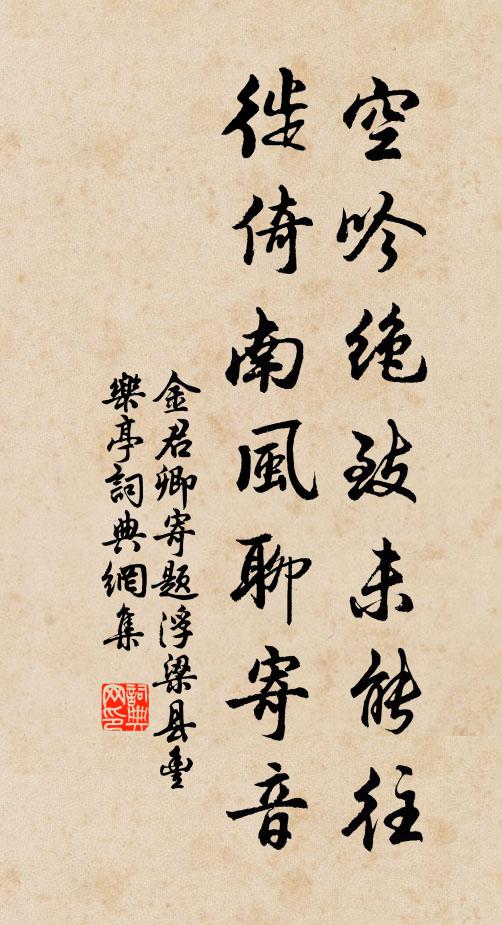 空吟绝致未能往
徙倚南風聊寄音
金君卿寄题浮梁县豐
樂亭詞典網集
詞典网印